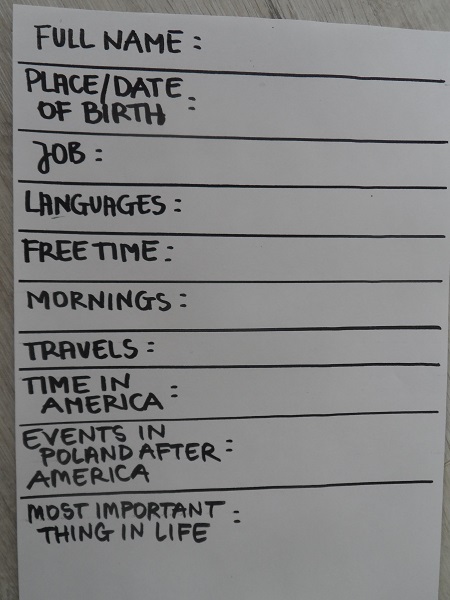 FULL NAME :
PLACE/DATE
OF BIRTH :
JOB :
LANGUAGES :
FREE TIME :
MORNINGS :
TRAVELS :
TIME IN
AMERICA :
EVENTS IN
POLAND AFTER :
AMERICA
MOST IMPORTANT :
THING IN LIFE